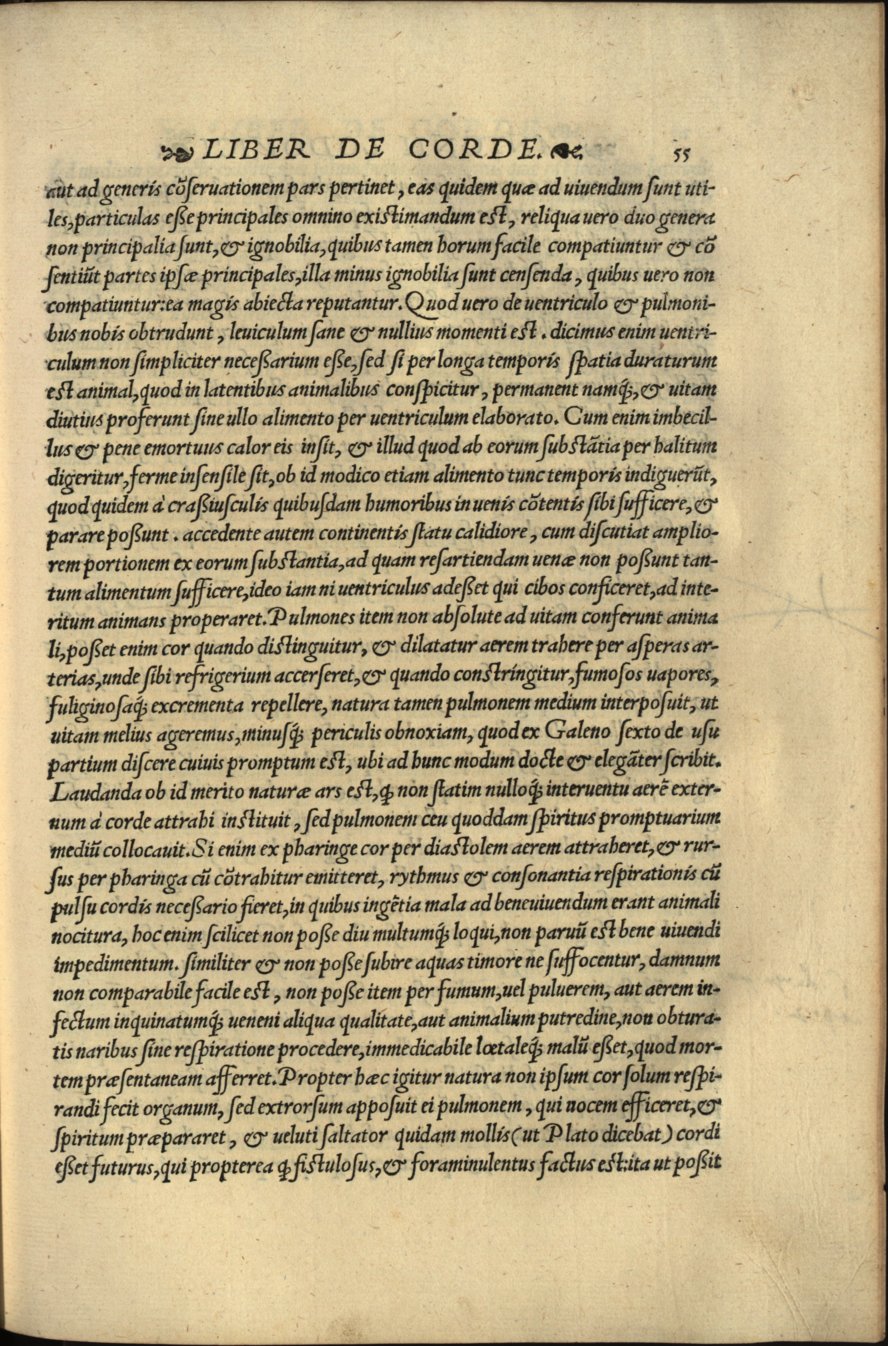 LIBER DE CORDE. 55
aut ad generis cõseruationem pars pertinet, eas quidem quæ ad uiuendum sunt uti-
les, particulas eße principales omnino existimandum est, reliqua uero duo genera
non principalia sunt, & ignobilia, quibus tamen horum facile compatiuntur & cõ
sentiũt partes ipsæ principales, illa minus ignobilia sunt censenda, quibus uero non
compatiuntur: ea magis abiecta reputantur. Quod uero de uentriculo & pulmoni-
bus nobis obtrudunt, leuiculum sane & nullius momenti est. dicimus enim uentri-
culum non simpliciter neceßarium eße, sed si per longa temporis spatia duraturum
est animal, quod in latentibus animalibus conspicitur, permanent namq́;, & uitam
diutius proferunt sine ullo alimento per uentriculum elaborato. Cum enim imbecil-
lus & pene emortuus calor eis insit, & illud quod ab eorum substãtia per halitum
digeritur, ferme insensile sit, ob id modico etiam alimento tunc temporis indiguerũt,
quod quidem à craßiusculis quibusdam humoribus in uenis cõtentis sibi sufficere, &
parare poßunt. accedente autem continentis statu calidiore, cum discutiat amplio-
rem portionem ex eorum substantia, ad quam resartiendam uenæ non poßunt tan-
tum alimentum sufficere, ideo iam ni uentriculus adeßet qui cibos conficeret, ad inte-
ritum animans properaret. Pulmones item non absolute ad uitam conferunt anima
li, poßet enim cor quando distinguitur, & dilatatur aerem trahere per asperas ar-
terias, unde sibi refrigerium accerseret, & quando constringitur, fumosos uapores,
fuliginosaq́; excrementa repellere, natura tamen pulmonem medium interposuit, ut
uitam melius ageremus, minusq́; periculis obnoxiam, quod ex Galeno sexto de usu
partium discere cuiuis promptum est, ubi ad hunc modum docte & elegãter scribit.
Laudanda ob id merito naturæ ars est, ꝙ non statim nulloq́; interuentu aerẽ exter-
num à corde attrahi instituit, sed pulmonem ceu quoddam spiritus promptuarium
mediũ collocauit. Si enim ex pharinge cor per diastolem aerem attraheret, & rur-
sus per pharinga cũ cõtrahitur emitteret, rythmus & consonantia respirationis cũ
pulsu cordis neceßario fieret, in quibus ingẽtia mala ad bene uiuendum erant animali
nocitura, hoc enim scilicet non poße diu multumq́; loqui, non paruũ est bene uiuendi
impedimentum. similiter & non poße subire aquas timore ne suffocentur, damnum
non comparabile facile est, non poße item per fumum, uel puluerem, aut aerem in-
fectum inquinatumq́; ueneni aliqua qualitate, aut animalium putredine, non obtura-
tis naribus sine respiratione procedere, immedicabile lœtaleq́; malũ eßet, quod mor-
tem præsentaneam afferret. Propter hæc igitur natura non ipsum cor solum respi-
randi fecit organum, sed extrorsum apposuit ei pulmonem, qui uocem efficeret, &
spiritum præpararet, & ueluti saltator quidam mollis (ut Plato dicebat) cordi
eßet futurus, qui propterea ꝙ fistulosus, & foraminulentus factus est: ita ut poßit